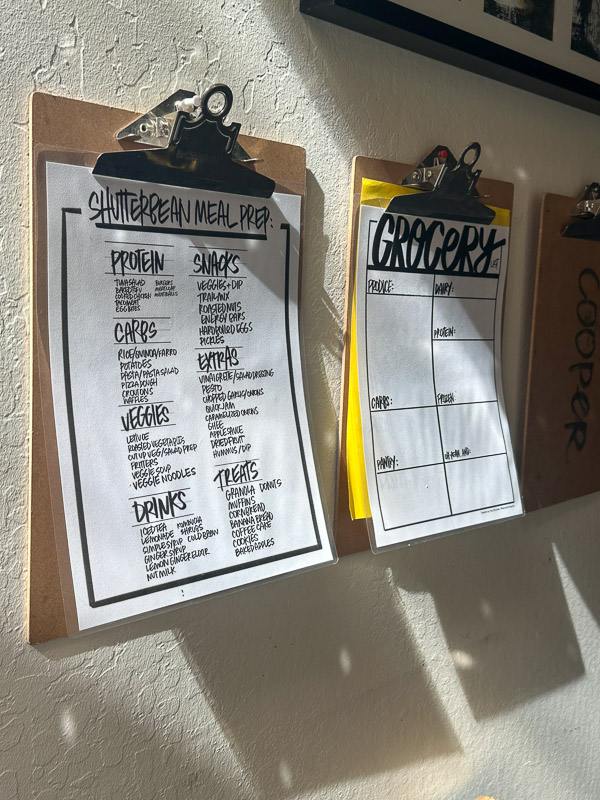 SHUTTERBEAN MEAL PREP:
PROTEIN
TUNA SALAD BURGERS
BAKED TOFU
COOKED CHICKEN MEATBALLS
TACO MEAT
EGG BITES
CARBS
RICE/QUINOA/FARRO
POTATOES
PASTA/PASTA SALAD
PIZZA DOUGH
CROUTONS
WAFFLES
VEGGIES
LETTUCE
ROASTED VEGETABLES
CUT UP VEG/SALAD PREP
FRITTERS
VEGGIE SOUP
VEGGIE NOODLES
DRINKS
ICED TEA KOMBUCHA
LEMONADE SHRUBS
SIMPLE SYRUP COLD BREW
GINGER SYRUP
LEMON GINGER ELIXIR
NUT MILK
SNACKS
VEGGIES + DIP
TRAIL MIX
ROASTED NUTS
ENERGY BARS
HARDBOILED EGGS
PICKLES
EXTRAS
VINAIGRETTE/SALAD DRESSING
PESTO
CHOPPED GARLIC/ONIONS
QUICK JAM
CARAMELIZED ONIONS
GHEE
APPLESAUCE
DRIED FRUIT
HUMMUS/DIP
TREATS
GRANOLA DONUTS
MUFFINS
CORNBREAD
BANANA BREAD
COFFEE CAKE
COOKIES
BAKED APPLES
GROCERY LIST
PRODUCE:
DAIRY:
PROTEIN:
CARBS:
FROZEN:
PANTRY:
COOPER